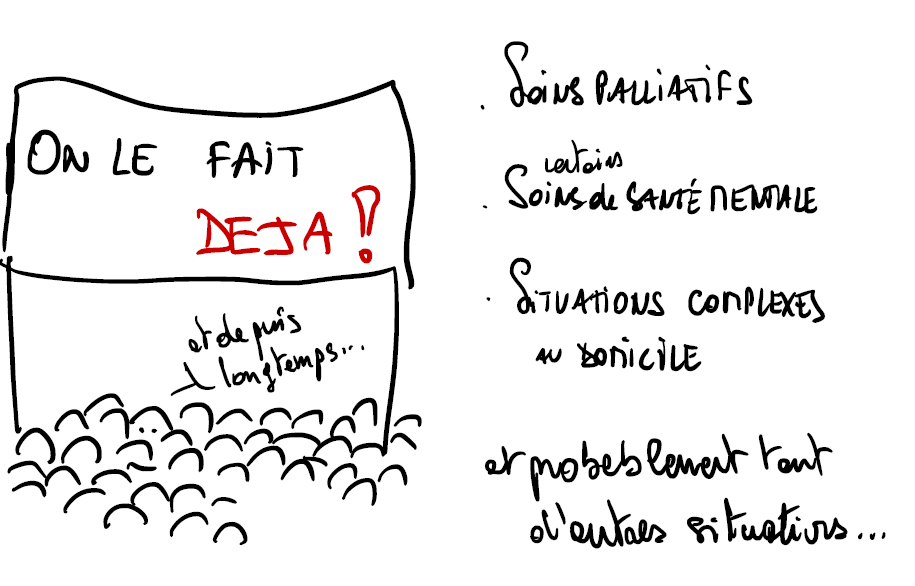 ON LE FAIT
DEJA !
et depuis
longtemps...
. Soins PALLIATIFS
certains
. Soins de SANTÉ MENTALE
. SITUATIONS COMPLEXES
AU DOMICILE
et probablement tant
d'autres situations...